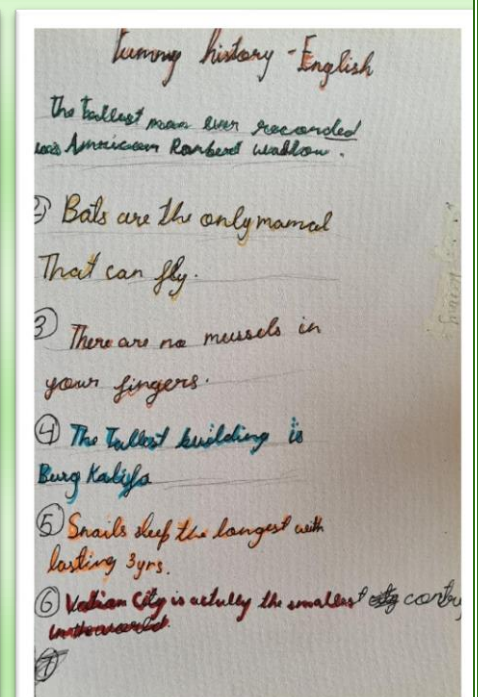 Funny history - English
The Tallest man ever recorded
was American Ronbert wadlow.
2) Bats are the only mamal
That can fly.
3 There are no mussels in
your fingers.
4 The Tallest building is
Burg Kalifa
5 Snails sleep the longest with
lasting 3yrs.
6 Vatican City is actully the smallest contry
in the world.